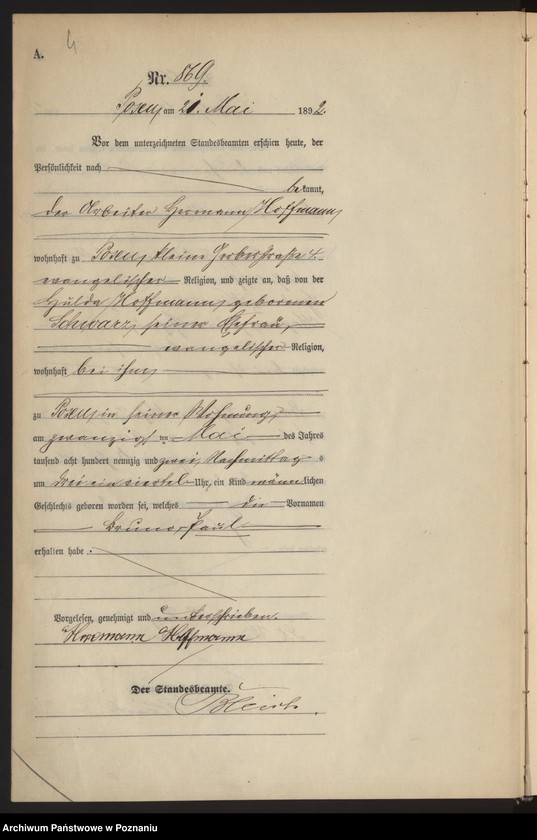 A.
4
Nr. 869.
Posen am 21. Mai 1892.
Vor dem unterzeichneten Standesbeamten erschien heute, der
Persönlichkeit nach
bekannt,
der Arbeiter Hermann Hoffmann,
wohnhaft zu Posen, kleine Gerberstraße 4.
evangelischer Religion, und zeigte an, daß von der
Hulda Hoffmann, geborenen
Schwarz, seiner Ehefrau,
evangelischer Religion,
wohnhaft bei ihm,
zu Posen, in seiner Wohnung,
am zwanzigsten Mai des Jahres
tausend acht hundert neunzig und zwei, Nachmittags
um drei ein viertel Uhr, ein Kind männlichen
Geschlechts geboren worden sei, welches die Vornamen
Bruno, Paul
erhalten habe.
Vorgelesen, genehmigt und unterschrieben.
Hermann Hoffmann
Der Standesbeamte.
Archiwum Państwowe w Poznaniu